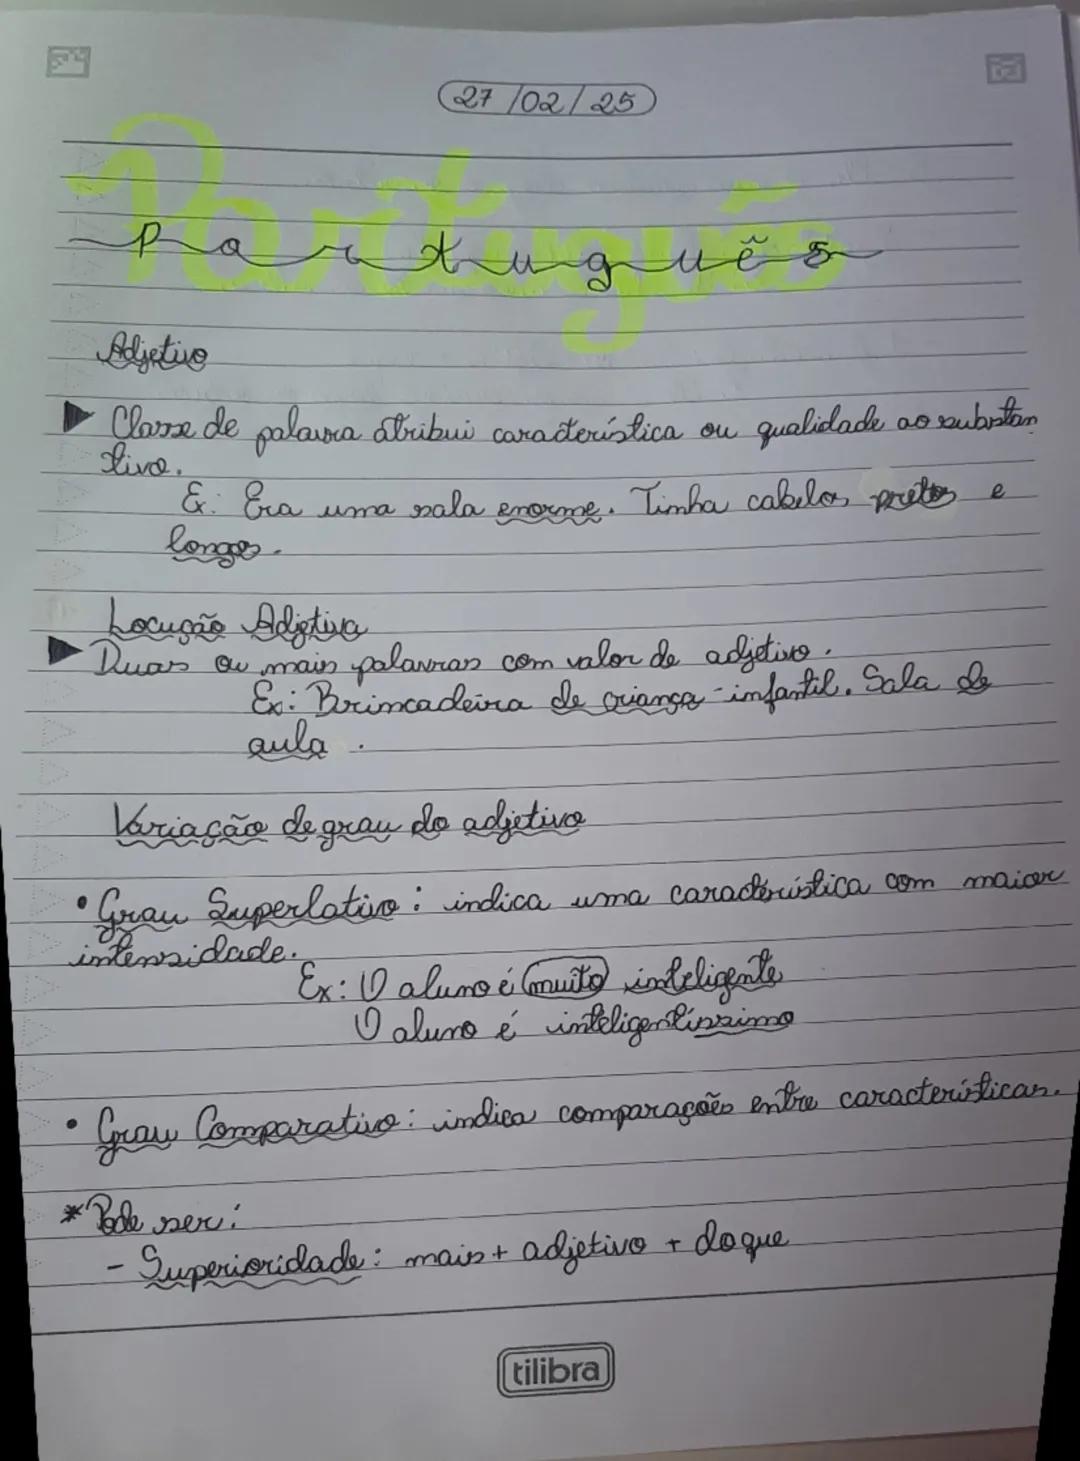 27/02/25
Português
Português
Adjetivo
Classe de palavra atribui característica ou qualidade ao substan
tivo.
Ex: Era uma sala enorme. Tinha cabelos pretos e
longos.
Locução Adjetiva
Duas ou mais palavras com valor de adjetivo.
Ex: Brincadeira de criança - infantil. Sala de
aula.
Variação de grau do adjetivo
• Grau Superlativo: indica uma característica com maior
intensidade.
Ex: O aluno é muito inteligente
O aluno é inteligentíssimo
• Grau Comparativo: indica comparações entre características.
* Pode ser:
- Superioridade: mais + adjetivo + do que
tilibra